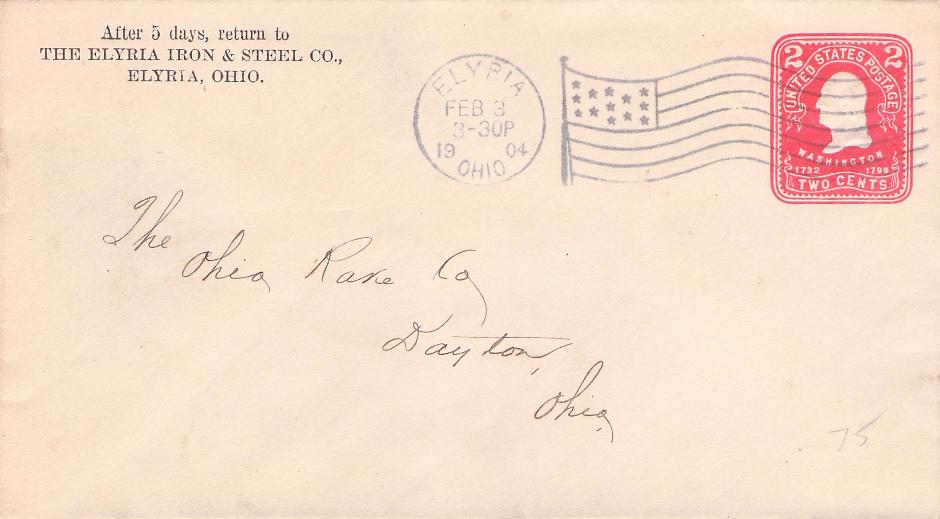 After 5 days, return to
THE ELYRIA IRON & STEEL CO.,
ELYRIA, OHIO.
ELYRIA
FEB 3
3-30P
19 04
OHIO
2 2
UNITED STATES POSTAGE
WASHINGTON
1732 1799
TWO CENTS
The
Ohio Rake Co
Dayton,
Ohio,
75